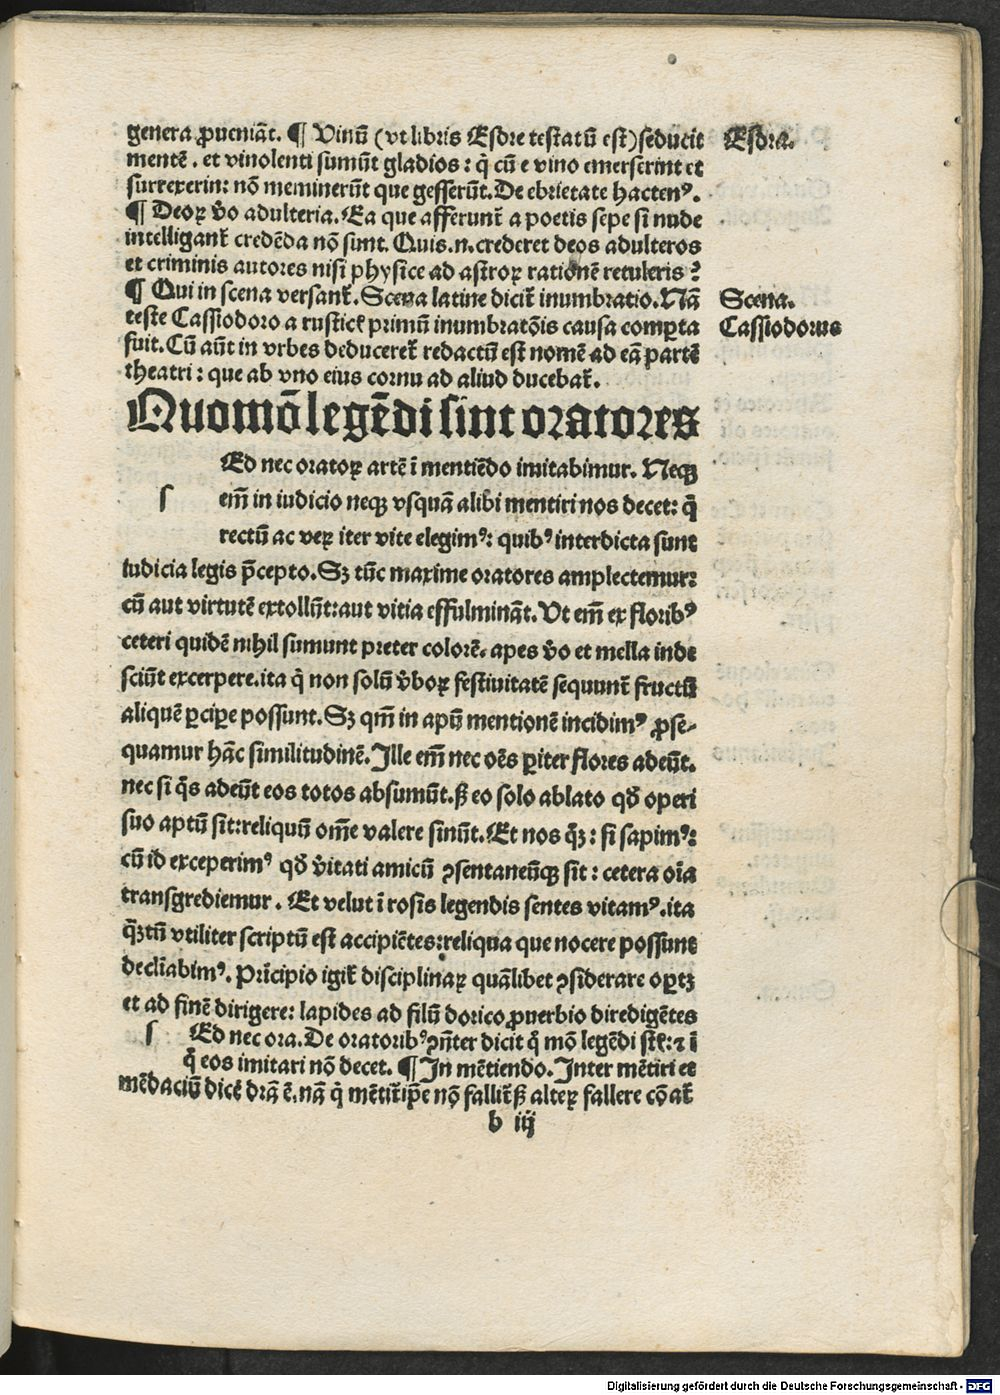 genera ꝓueniãt. ¶ Vinũ (vt libris Esdre testatũ est) seducit
Esdra.
mentẽ. et vinolenti sumũt gladios: q̃ cũ e vino emerserint et
surrexerin: nõ meminerũt que gesserũt. De ebrietate hactenꝰ.
¶ Deoꝝ ṽo adulteria. Ea que afferunt̃ a poetis sepe si nude
intelligant̃ credẽda nõ sunt. Quis .n. crederet deos adulteros
et criminis autores nisi physice ad astroꝝ rationẽ retuleris?
¶ Qui in scena versant̃. Scena latine dicit̃ inumbratio. Nã
Scena.
teste Cassiodoro a rustic̃ primũ inumbratõis causa compta
Cassiodorus
fuit. Cũ aũt in vrbes deduceret̃ redactũ est nomẽ ad eã partẽ
theatri: que ab vno eius cornu ad aliud ducebat̃.
Quomõ legẽdi sint oratores
Ed nec oratoꝝ artẽ ĩ mentiẽdo imitabimur. Neqꝫ
s em̃ in iudicio neqꝫ vsquã alibi mentiri nos decet: q̃
rectũ ac veꝝ iter vite elegimꝰ: quibꝰ interdicta sunt
iudicia legis p̃cepto. Sꝫ tũc maxime oratores amplectemur:
cũ aut virtutẽ extollũt: aut vitia effulminãt. Vt em̃ ex floribꝰ
ceteri quidẽ nihil sumunt preter colorẽ. apes ṽo et mella inde
sciũt excerpere. ita q̃ non solũ ṽboꝝ festiuitatẽ sequunt̃ fructũ
aliquẽ ꝑcipe possunt. Sꝫ qm̃ in apũ mentionẽ incidimꝰ ꝓse-
quamur hãc similitudinẽ. Ille em̃ nec oẽs ꝑiter flores adeũt.
nec si q̃s adeũt eos totos absumũt. ß eo solo ablato qđ operi
suo aptũ sit: reliquũ om̃e valere sinũt. Et nos qꝫ: si sapimꝰ:
cũ id exceperimꝰ qđ ṽitati amicũ ꝯsentaneũqꝫ sit: cetera oĩa
transgrediemur. Et velut ĩ rosis legendis sentes vitamꝰ. ita
q̃ꝫtũ vtiliter scriptũ est accipiẽtes: reliqua que nocere possunt
declĩabimꝰ. Prĩcipio igit̃ disciplinaꝝ quãlibet ꝯsiderare oꝑtꝫ
et ad finẽ dirigere: lapides ad filũ dorico ꝓuerbio diredigẽtes
s Ed nec ora. De oratoribꝰ ꝯñter dicit q̃ mõ legẽdi st̃: ⁊ ĩ
q̃ eos imitari nõ decet. ¶ In mẽtiendo. Inter mẽtiri et
mẽdaciũ dicẽ drã ẽ. nã q̃ mẽtit̃ ip̃e nõ fallit̃ ß alteꝝ fallere cõat̃
b iij
Digitalisierung gefördert durch die Deutsche Forschungsgemeinschaft - DFG